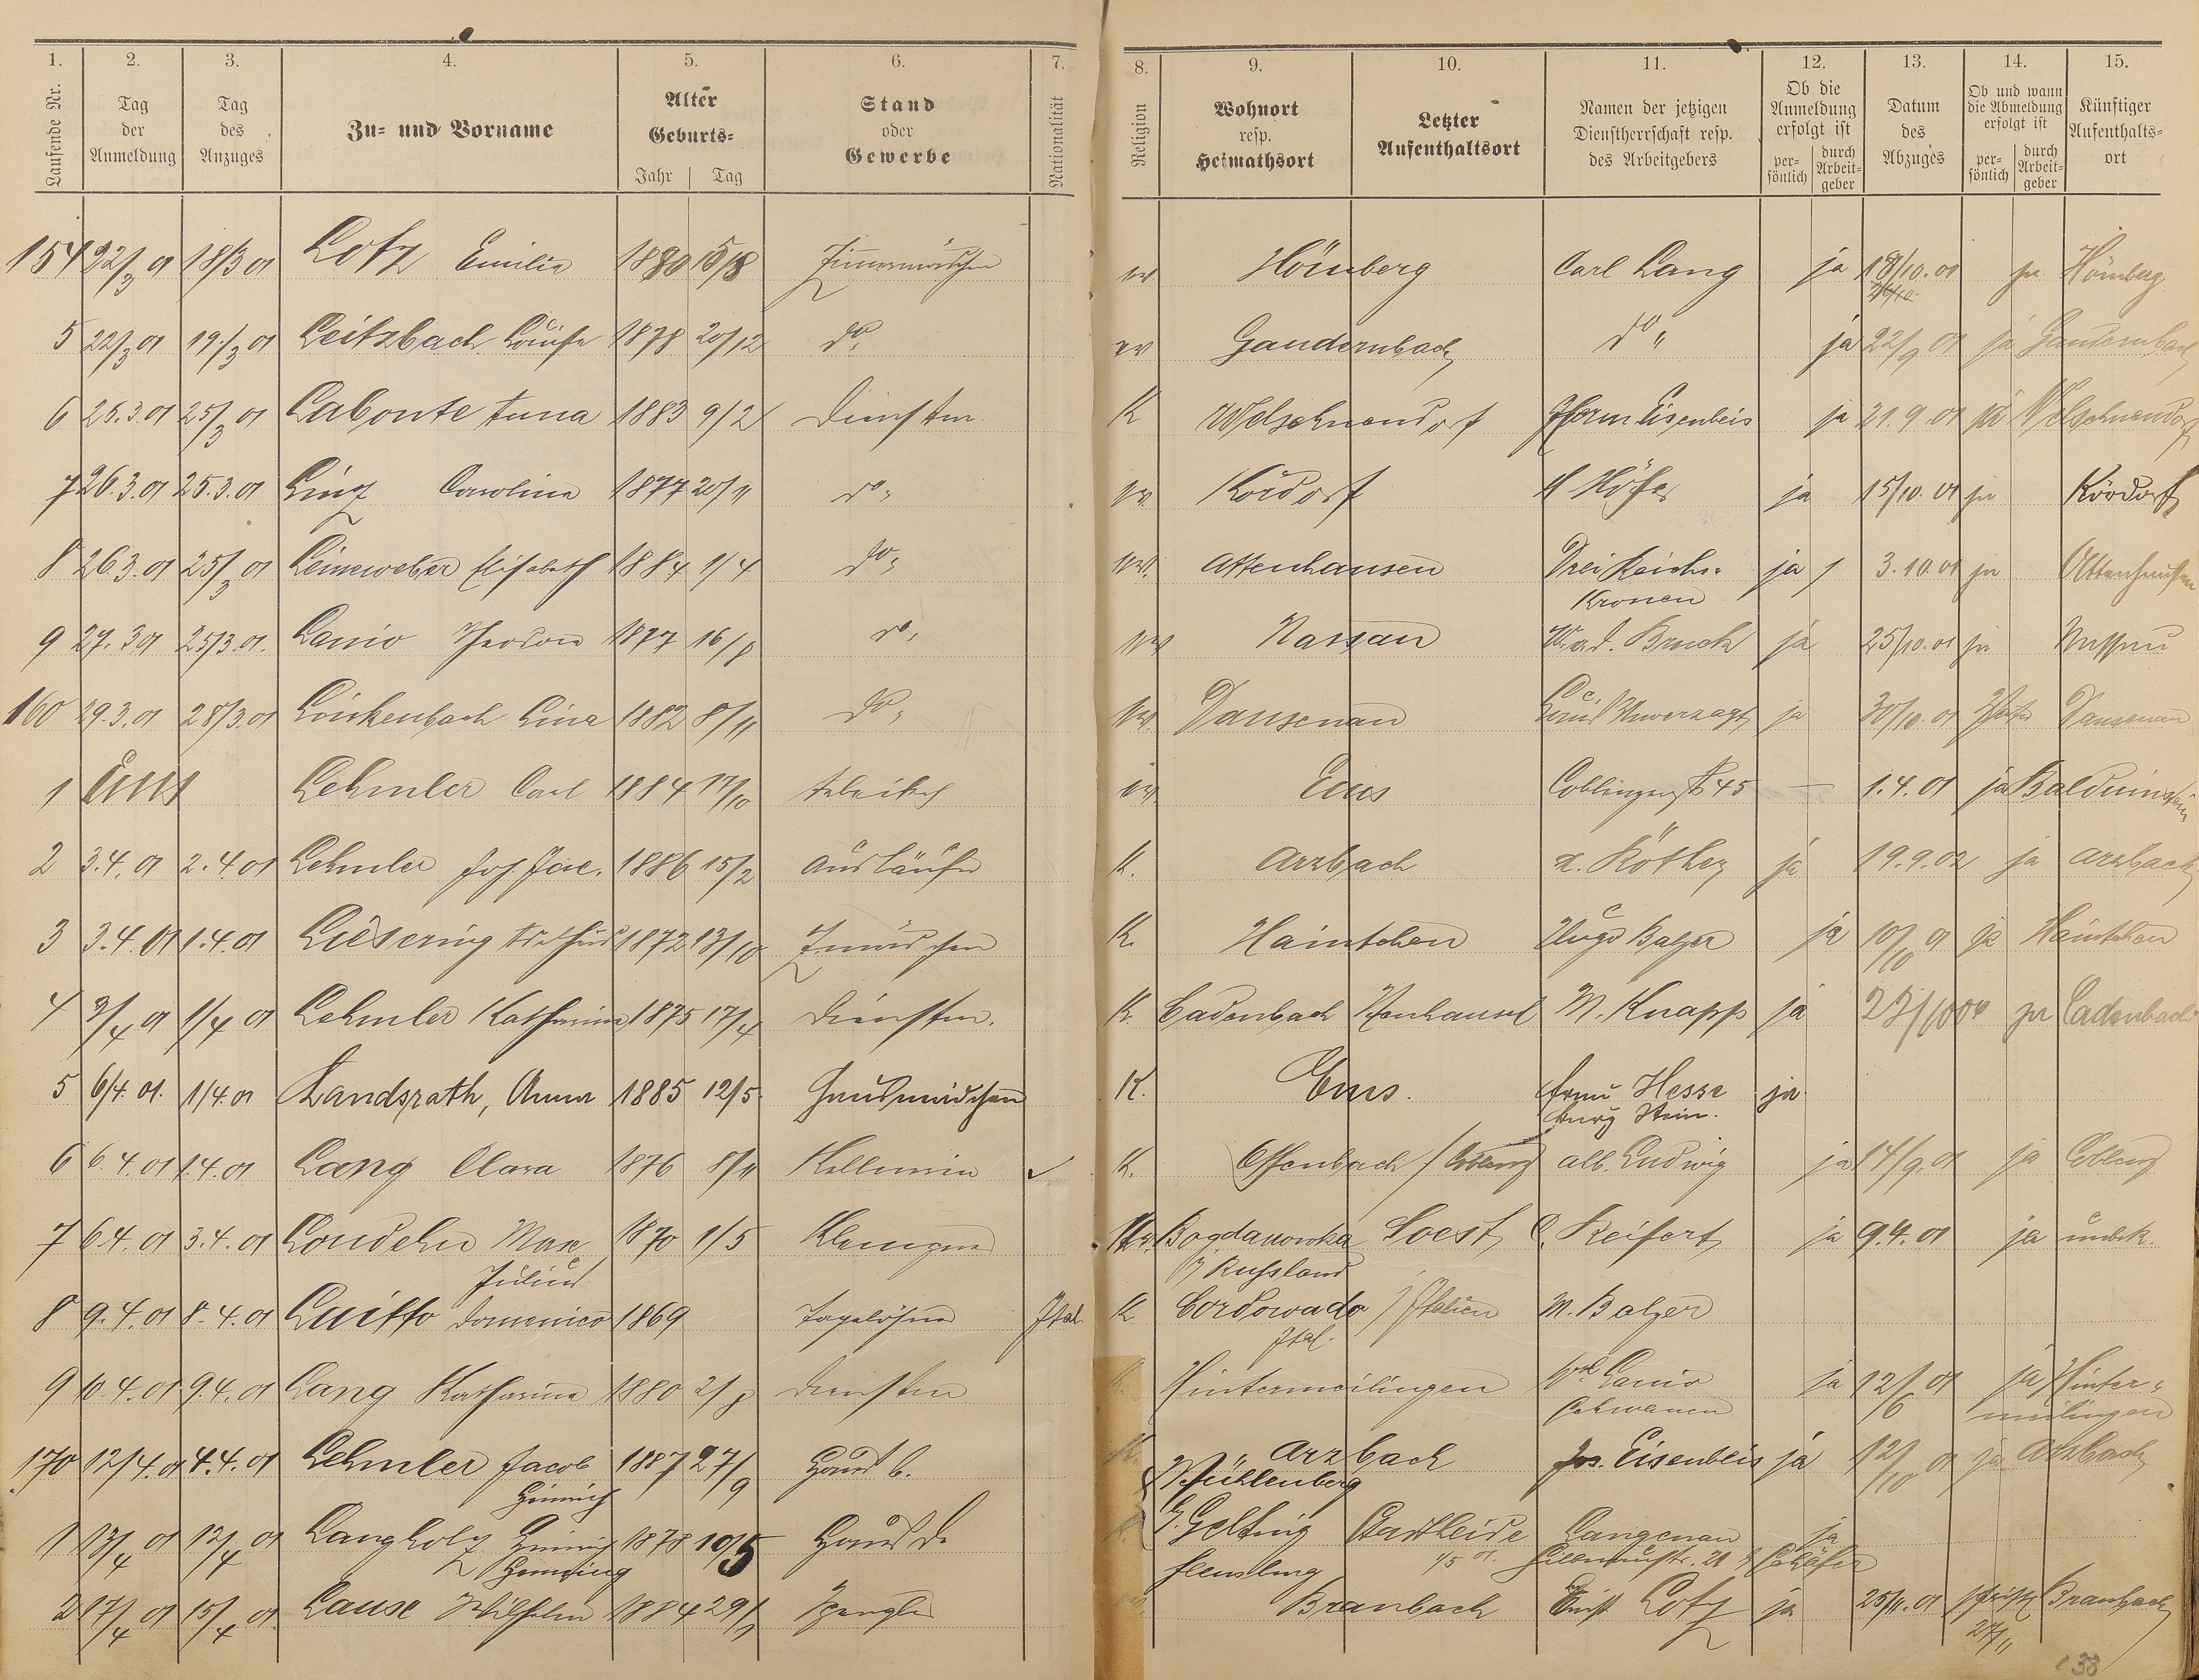 1. 2. 3. 4. 5. 6. 7. 8. 9. 10. 11. 12. 13. 14. 15.
Laufende Nr. Tag der Anmeldung Tag des Anzuges Zu- und Vorname Alter Geburts- Jahr Tag Stand oder Gewerbe Nationalität Religion Wohnort resp. Heimathsort Letzter Aufenthaltsort Namen der jetzigen Dienstherrschaft resp. des Arbeitgebers Ob die Anmeldung erfolgt ist persönlich durch Arbeitgeber Datum des Abzuges Ob und wann die Abmeldung erfolgt ist persönlich durch Arbeitgeber Künftiger Aufenthaltsort
154 22/3 01 18/3 01 Lotz Emilie 1880 15/8 Zimmermädchen ev Hömberg Carl Lang ja 18/10.01 ja Hömberg
5 22/3 01 19./3 01 Leitzbach Louise 1878 20/12 do. ev Gaudernbach do " ja 22/9 01 ja Gaudernbach
6 26.3.01 25/3 01 Labonte Anna 1883 9/2 Dienstm. K Welschneudorf Herm Eisenbeis ja 21.9.01 ja Welschneudorf
7 26.3.01 25.3.01 Linz Caroline 1877 20/11 do. ev. Kördorf H Höfer ja 15/10.01 ja Kördorf
8 26.3.01 25/3 01 Leineweber Elisabeth 1884 1/4 do. ev. Attenhausen Drei Reichs- ja 3.10.01 ja Attenhausen
Kronen
9 27.3 01 25/3.01. Lanio Theodor 1877 16/8 do. ev Nassau W. a. d. Bruch ja 25/10.01 ja Nassau
160 29.3.01 28/3.01 Linkenbach Lina 1882 8/11 do. ev. Dausenau Louis Unverzagt ja 30/10.01 Dausenau
1 Ems Lehmler Carl 1884 17/10 Arbeiter ev. Ems Coblenzerstr 45 — 1.4.01 ja Balduinstein
2 3.4.01 2.4.01 Lehmler Joh. 1886 15/2 Ausläufer K. Arzbach A. Röther ja 19.9.02 ja Arzbach
3 3.4.01 1.4.01 Liesering 1872 13/10 Zmädchen K. Haintchen Hugo Balzer ja 10/10 01 ja Haintchen
4 3/4 01 1/4 01 Lehmler Katharina 1875 17/4 Dienstm. K. Cadenbach Neuhäusel M. Knapp ja ja Cadenbach
5 6/4.01. 1/4.01 Landsrath, Anna 1885 12/5. Hausmädchen K. Ems. Frau Hesse ja.
Burg Stein.
6 6.4.01 1.4.01 Lang Clara 1876 8/11 Kellnerin K. Offenbach / Coblenz Alb. Ludwig ja 14/9.01 ja Coblenz
7 6.4.01 3.4.01 Londelu Max 1870 1/5 Klempner Bogdanowka Soest C. Reifert ja 9.4.01 ja unbek.
Julius Russland
8 9.4.01 8.4.01 Luitto Domenico 1869 Tagelöhner Ital. K Cordowado / Italien M. Balzer
Ital.
9 10.4.01 9.4.01 Lang Katharina 1880 2/8 Dienstm Hintermeilingen Lanio ja 12/6 01 ja Hinter-
Schwanen meilingen
170 12/4.01 4.4.01 Lehmler Jacob 1887 27/9 Haus b. K. Arzbach Jos. Eisenbeis ja 12/10 01 ja Arzbach
Heinrich Mühlenberg
1 13/4 01 12/4 01 Langholz Heinrich 1878 10/5 Haus d. Gelting Langenau ja
Henning Flensburg 1/5 01. Schäfer
2 17/4 01 15/4 01 Lause Wilhelm 1884 29/1 Spengler ev. Braubach Ernst Lotz ja 25/11.01 Braubach
27/11
138